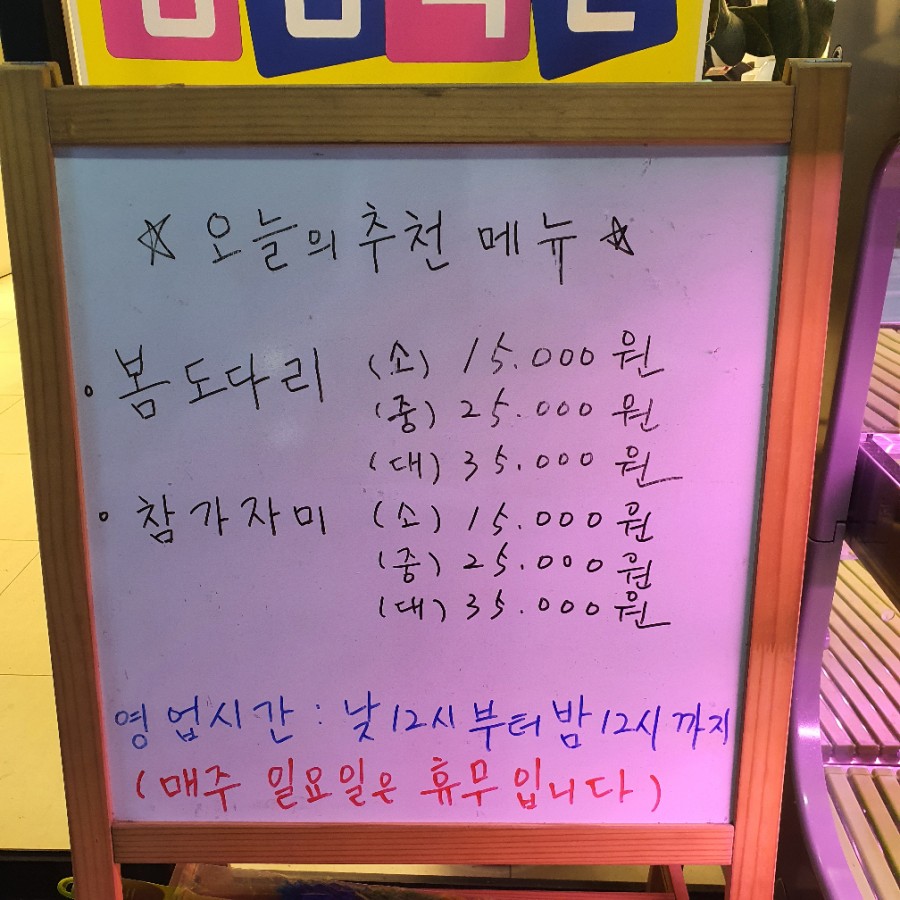 ☆ 오늘의 추천 메뉴 ☆
• 봄도다리 (소) 15.000원
(중) 25.000원
(대) 35.000원
• 참가자미 (소) 15.000원
(중) 25.000원
(대) 35.000원
영업시간 : 낮12시부터 밤12시까지
(매주 일요일은 휴무입니다)